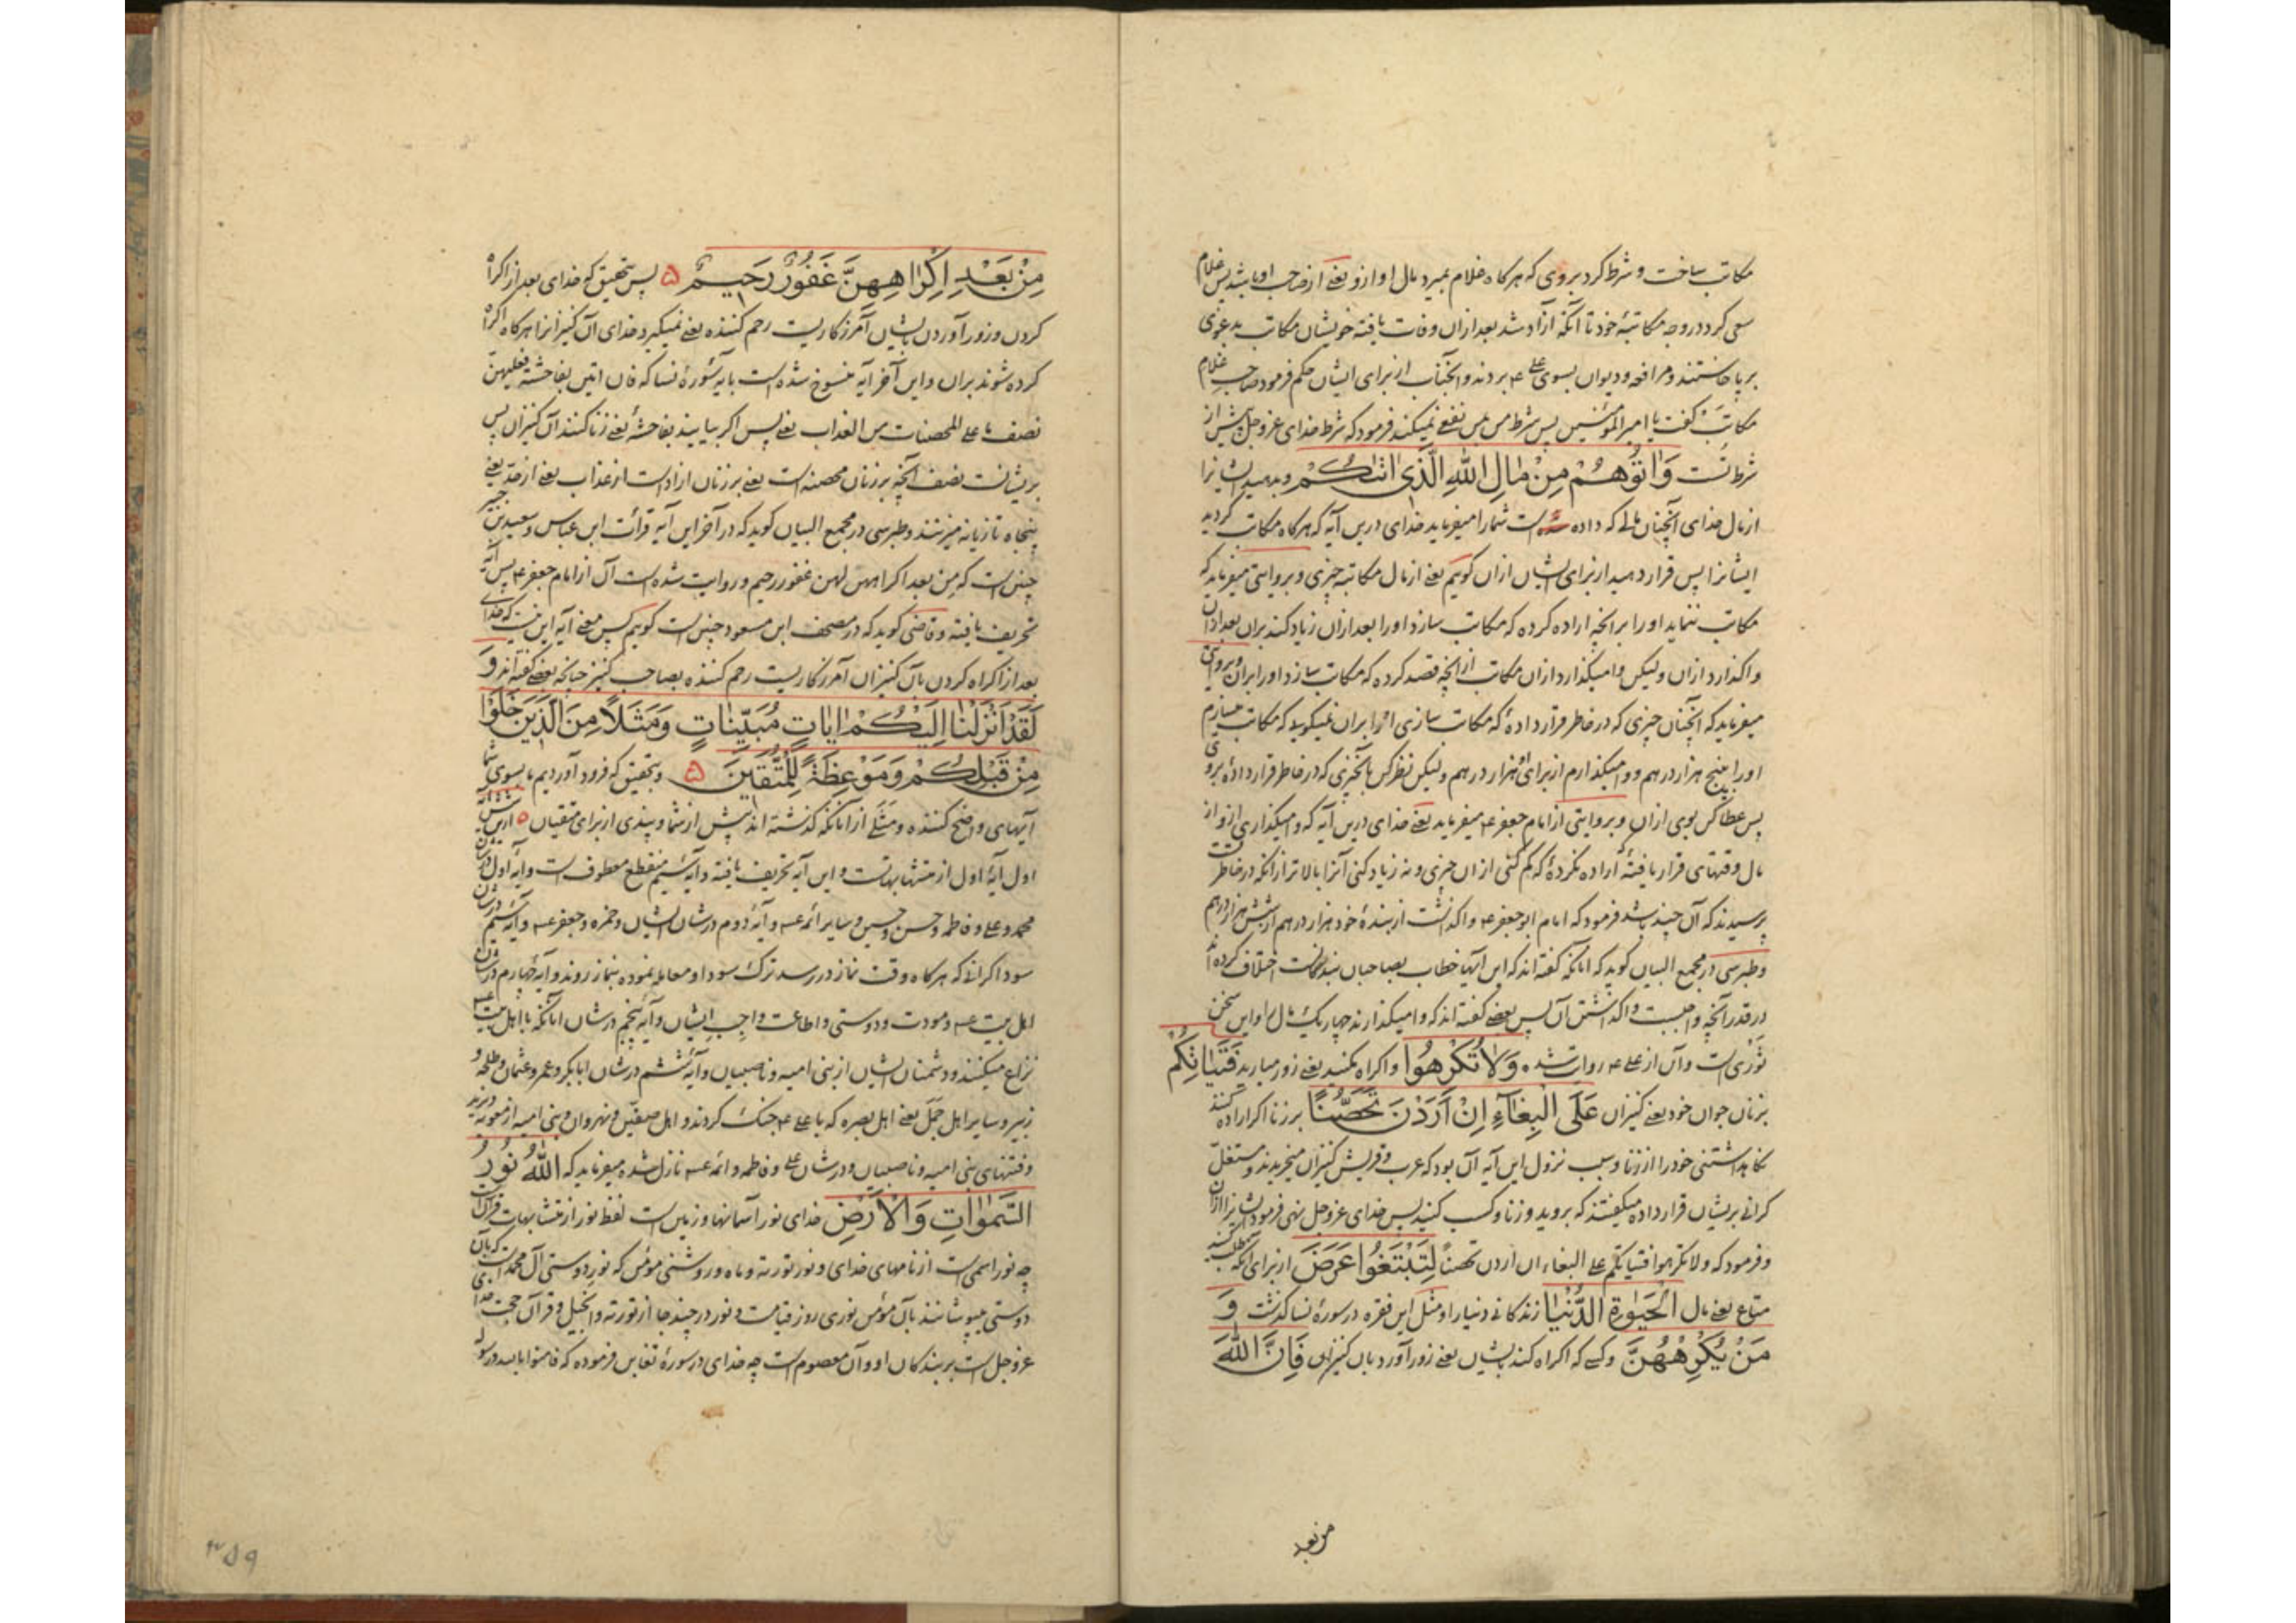 مکاتب ساخت و شرط کرد بروی که هرکاه غلام بمیرد مال او ازو یعنی ازصاحب او باشد پس غلام
سعی کرد در وجه مکاتبهٔ خود تا آنکه آزاد شد بعد ازان وفات یافته خویشان مکاتب بدعوی
برپا خاستند و مرافعه و دیوان بسوی علی ع بردند و آنجناب از برای ایشان حکم فرمود صاحب غلام
مکاتب کفت یا امیر المؤمنین پس شرط من نفع نمیکند فرمود که شرط خدای عزوجل پیش از
شرط تست وَاٰتُوهُمْ مِنْ مٰالِ اللّٰهِ الَّذِی اٰتٰیکُمْ وبدهید ایشانرا
ازمال خدای آنچنان مالی که داده است شمارا میفرماید خدای درین آیه که هرکاه مکاتب کردید
ایشانرا پس قرار دهید از برای ایشان ازان کویم یعنی ازمال مکاتبه چیزی و بروایتی میفرماید که
مکاتب ننماید اورا برانچه اراده کرده که مکاتب سازد اورا بعد ازان زیاد کند بران بعد ازان
واکذارد ازان ولیکن وامیکذارد ازان مکاتب ازانچه قصد کرده که مکاتب سازد اورا بران و بروایتی
میفرماید که آنچنان چیزی که در خاطر قرار دادهٔ که مکاتب سازی اورا بران نمیکوید که مکاتب میسازم
اورا بپنج هزار درهم و وامیکذارم از برای او هزار درهم ولیکن نظرکن بآنچیزی که در خاطر قرار دادهٔ بروی
پس عطاکن بوی ازان و بروایتی ازامام جعفر ع میفرماید یعنی خدای درین آیه که وامیکذاری ازو از
مال وقتهای قرار یافتهٔ اراده نکردهٔ که کم کنی ازان چیزی و نه زیاد کنی آنرا بالاتر ازانکه در خاطر
پرسیدند که آن چند باشد فرمود که امام ابو جعفر ع واکذاشت از بندهٔ خود هزار درهم از شش هزار درهم
وطبرسی در مجمع البیان کوید که آنانکه کفته اند که این آیها خطاب بصاحبان بندکانست اختلاف کرده اند
در قدر آنچه واجبست واکذاشتن آن پس بعضی کفته اند که وامیکذارند چهار یک مال را و این سخن
ثوری است و آن از علی ع روایت شد وَلاٰ تُکْرِهُوا و اکراه نکنید یعنی زور میارید فَتَیٰاتِکُمْ
بزنان جوان خود یعنی کنیزان عَلَی الْبِغٰآءِ اِنْ اَرَدْنَ تَحَصُّنًا برزنا اکر اراده کنند
نکاه داشتنی خودرا از زنا و سبب نزول این آیه آن بود که عرب و قریش کنیزان میخریدند و مستغل
کرانی بریشان قرارداده میکفتند که بروید و زنا و کسب کنید پس خدای عزوجل نهی فرمود ایشانرا ازان
وفرمود که ولا تکرهوا فتیاتکم علی البغاء ان اردن تحصنا لِتَبْتَغُوا عَرَضَ از برای آنکه طلب کنید
متاع یعنی مال الْحَیٰوةِ الدُّنْیٰا زندکانی دنیارا و مثل این فقره در سورهٔ نسا کذشت وَ
مَنْ یُکْرِهْهُنَّ وکسی که اکراه کند بایشان یعنی زور آورد بان کنیزان فَاِنَّ اللّٰهَ
من بعد
مِنْ بَعْدِ اِکْرٰاهِهِنَّ غَفُورٌ رَحِیمٌ ۵ پس بتحقیق که خدای بعد از اکراه
کردن و زور آوردن بایشان آمرزکاریست رحم کننده یعنی نمیکیرد خدای آن کنیزانرا هرکاه اکراه
کرده شوند بران و این آخر آیه منسوخ شده است بایهٔ سورهٔ نسا که فان اتین بفاحشة فعلیهن
نصف ما علی المحصنات من العذاب یعنی پس اکر بیایند بفاحشهٔ یعنی زنا کنند آن کنیزان پس
بریشانست نصف آنچه بر زنان محصنه است یعنی بر زنان ازاد است از عذاب یعنی از حد یعنی
پنجاه تازیانه میزنند و طبرسی در مجمع البیان کوید که در آخر این آیه قرائت ابن عباس و سعید بن جبیر
چنین است که من بعد اکراههن لهن غفور رحیم و روایت شده است آن از امام جعفر ع پس آیه
تحریف یافته و قاضی کوید که در مصحف ابن مسعود چنین است کویم پس معنی آیه اینست که خدای
بعد از اکراه کردن بآن کنیزان آمرزکاریست رحم کننده بصاحب کنیز چنانکه بعضی کفته اند وَ
لَقَدْ اَنْزَلْنٰا اِلَیْکُمْ اٰیٰاتٍ مُبَیِّنٰاتٍ وَمَثَلًا مِنَ الَّذِینَ خَلَوْا
مِنْ قَبْلِکُمْ وَمَوْعِظَةً لِلْمُتَّقِینَ ۵ وبتحقیق که فرود آوردیم ما بسوی شما
آیهای واضح کننده و مثلی از آنانکه کذشته اند پیش از شما و پندی از برای متقیان ۵
اول آیهٔ اول از متشابهاتست و این آیه تحریف یافته و آیهٔ سیم منقطع معطوف است و آیهٔ اول درشان
محمد و علی و فاطمه و حسن و حسین و سایر ائمه ع و آیهٔ دوم درشان ایشان و حمزه و جعفر ع و آیهٔ سیم درشان
سوداکرانی که هرکاه وقت نماز در رسد ترک سودا و معامله نموده بنماز روند و آیهٔ چهارم درشان
اهل بیت ع و مودت و دوستی و اطاعت واجب ایشان و آیهٔ پنجم درشان آنانکه با اهل بیت ع
نزاع میکنند و دشمنان ایشان از بنی امیه و ناصبیان و آیهٔ ششم درشان ابابکر و عمر و عثمان و طلحه و
زبیر و سایر اهل جمل یعنی اهل بصره که با علی ع جنک کردند و اهل صفین و نهروان و بنی امیه از معویه و یزید
وفتنهای بنی امیه و ناصبیان و درشان علی و فاطمه و ائمه ع نازل شده میفرماید که اَللّٰهُ نُورُ
السَّمٰوٰاتِ وَالْاَرْضِ خدای نور آسمانها و زمین است لفظ نور از متشابهات قرآنست
چه نور اسمی است از نامهای خدای و نور توریة و ماه و روشنی مؤمن که نور دوستی آل محمد است که بآن
دوستی میپوشانند بآن مؤمن نوری روز قیامت و نور در چند جا از توریة و انجیل و قرآن حجت خدای
عزوجل است بر بندکان او و آن معصوم است چه خدای در سورهٔ تغابن فرموده که فامنوا بالله ورسوله
۴۵۹